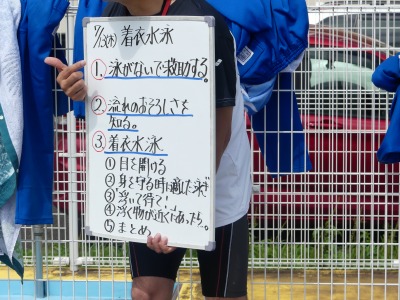 7/13(水) 着衣水泳
①. 泳がないで救助する。
②. 流れのおそろしさを
知る。
③ 着衣水泳
① 目を開ける
② 身を守る時に適した泳ぎ
③ 浮いて待て!
④ 浮く物が近くにあったら…。
⑤ まとめ